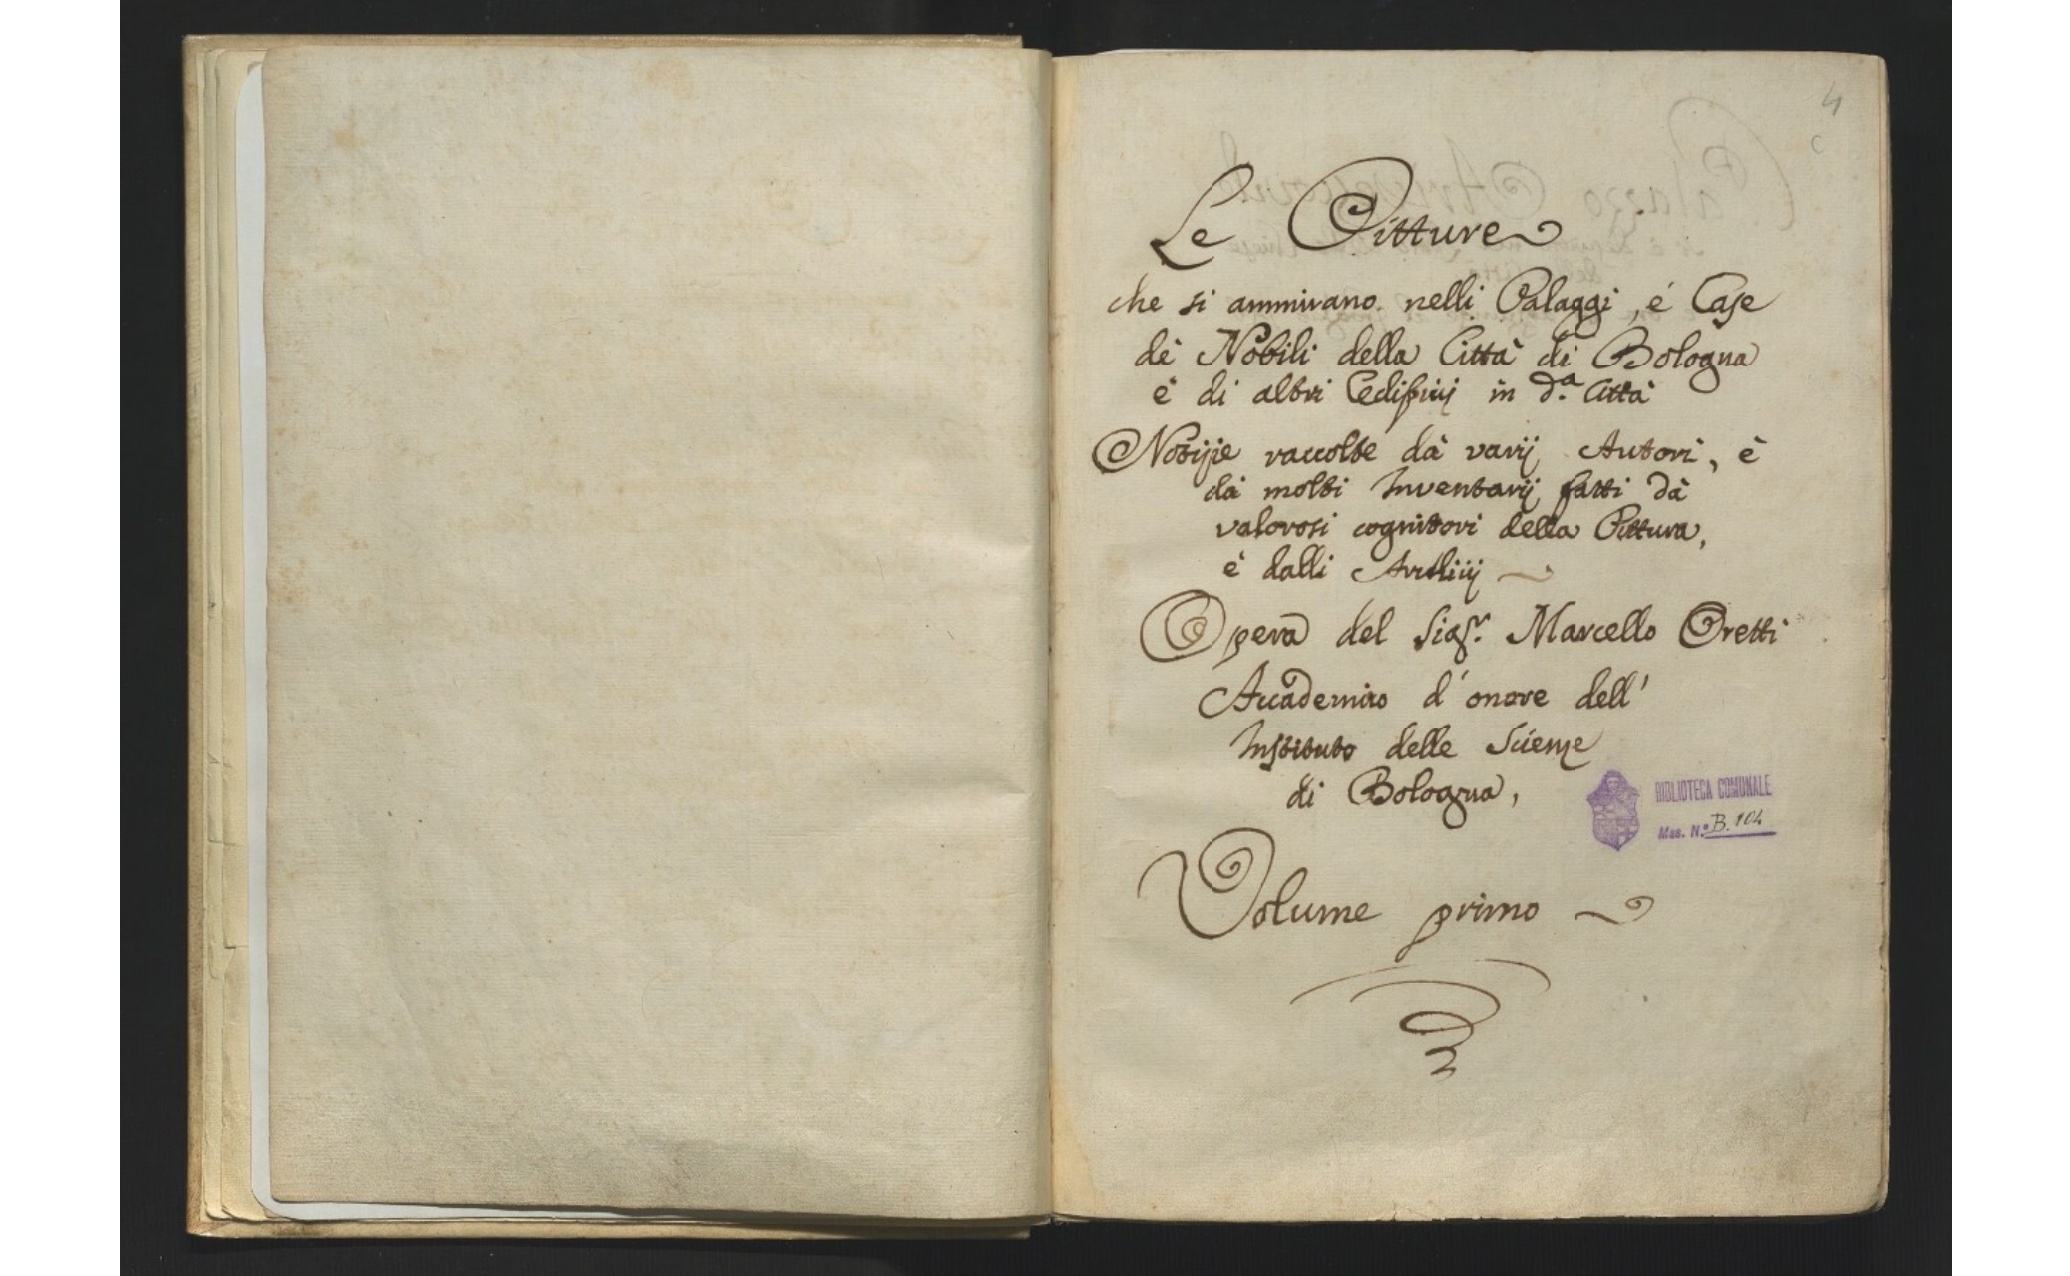 4
Le Pitture
che si ammirano nelli Palaggi, é Case
dè Nobili della Città di Bologna
è di altri Edifizij in d.ª Città
Notizie raccolte dà varij Autori, è
dà molti Inventarij fatti dà
valorosi cognitori della Pittura,
è dalli Archivij
Opera del Sigr. Marcello Oretti
Accademico d'onore dell'
Instituto delle Scienze
di Bologna,
BIBLIOTECA COMUNALE
Mss. N.º B. 104
Volume primo